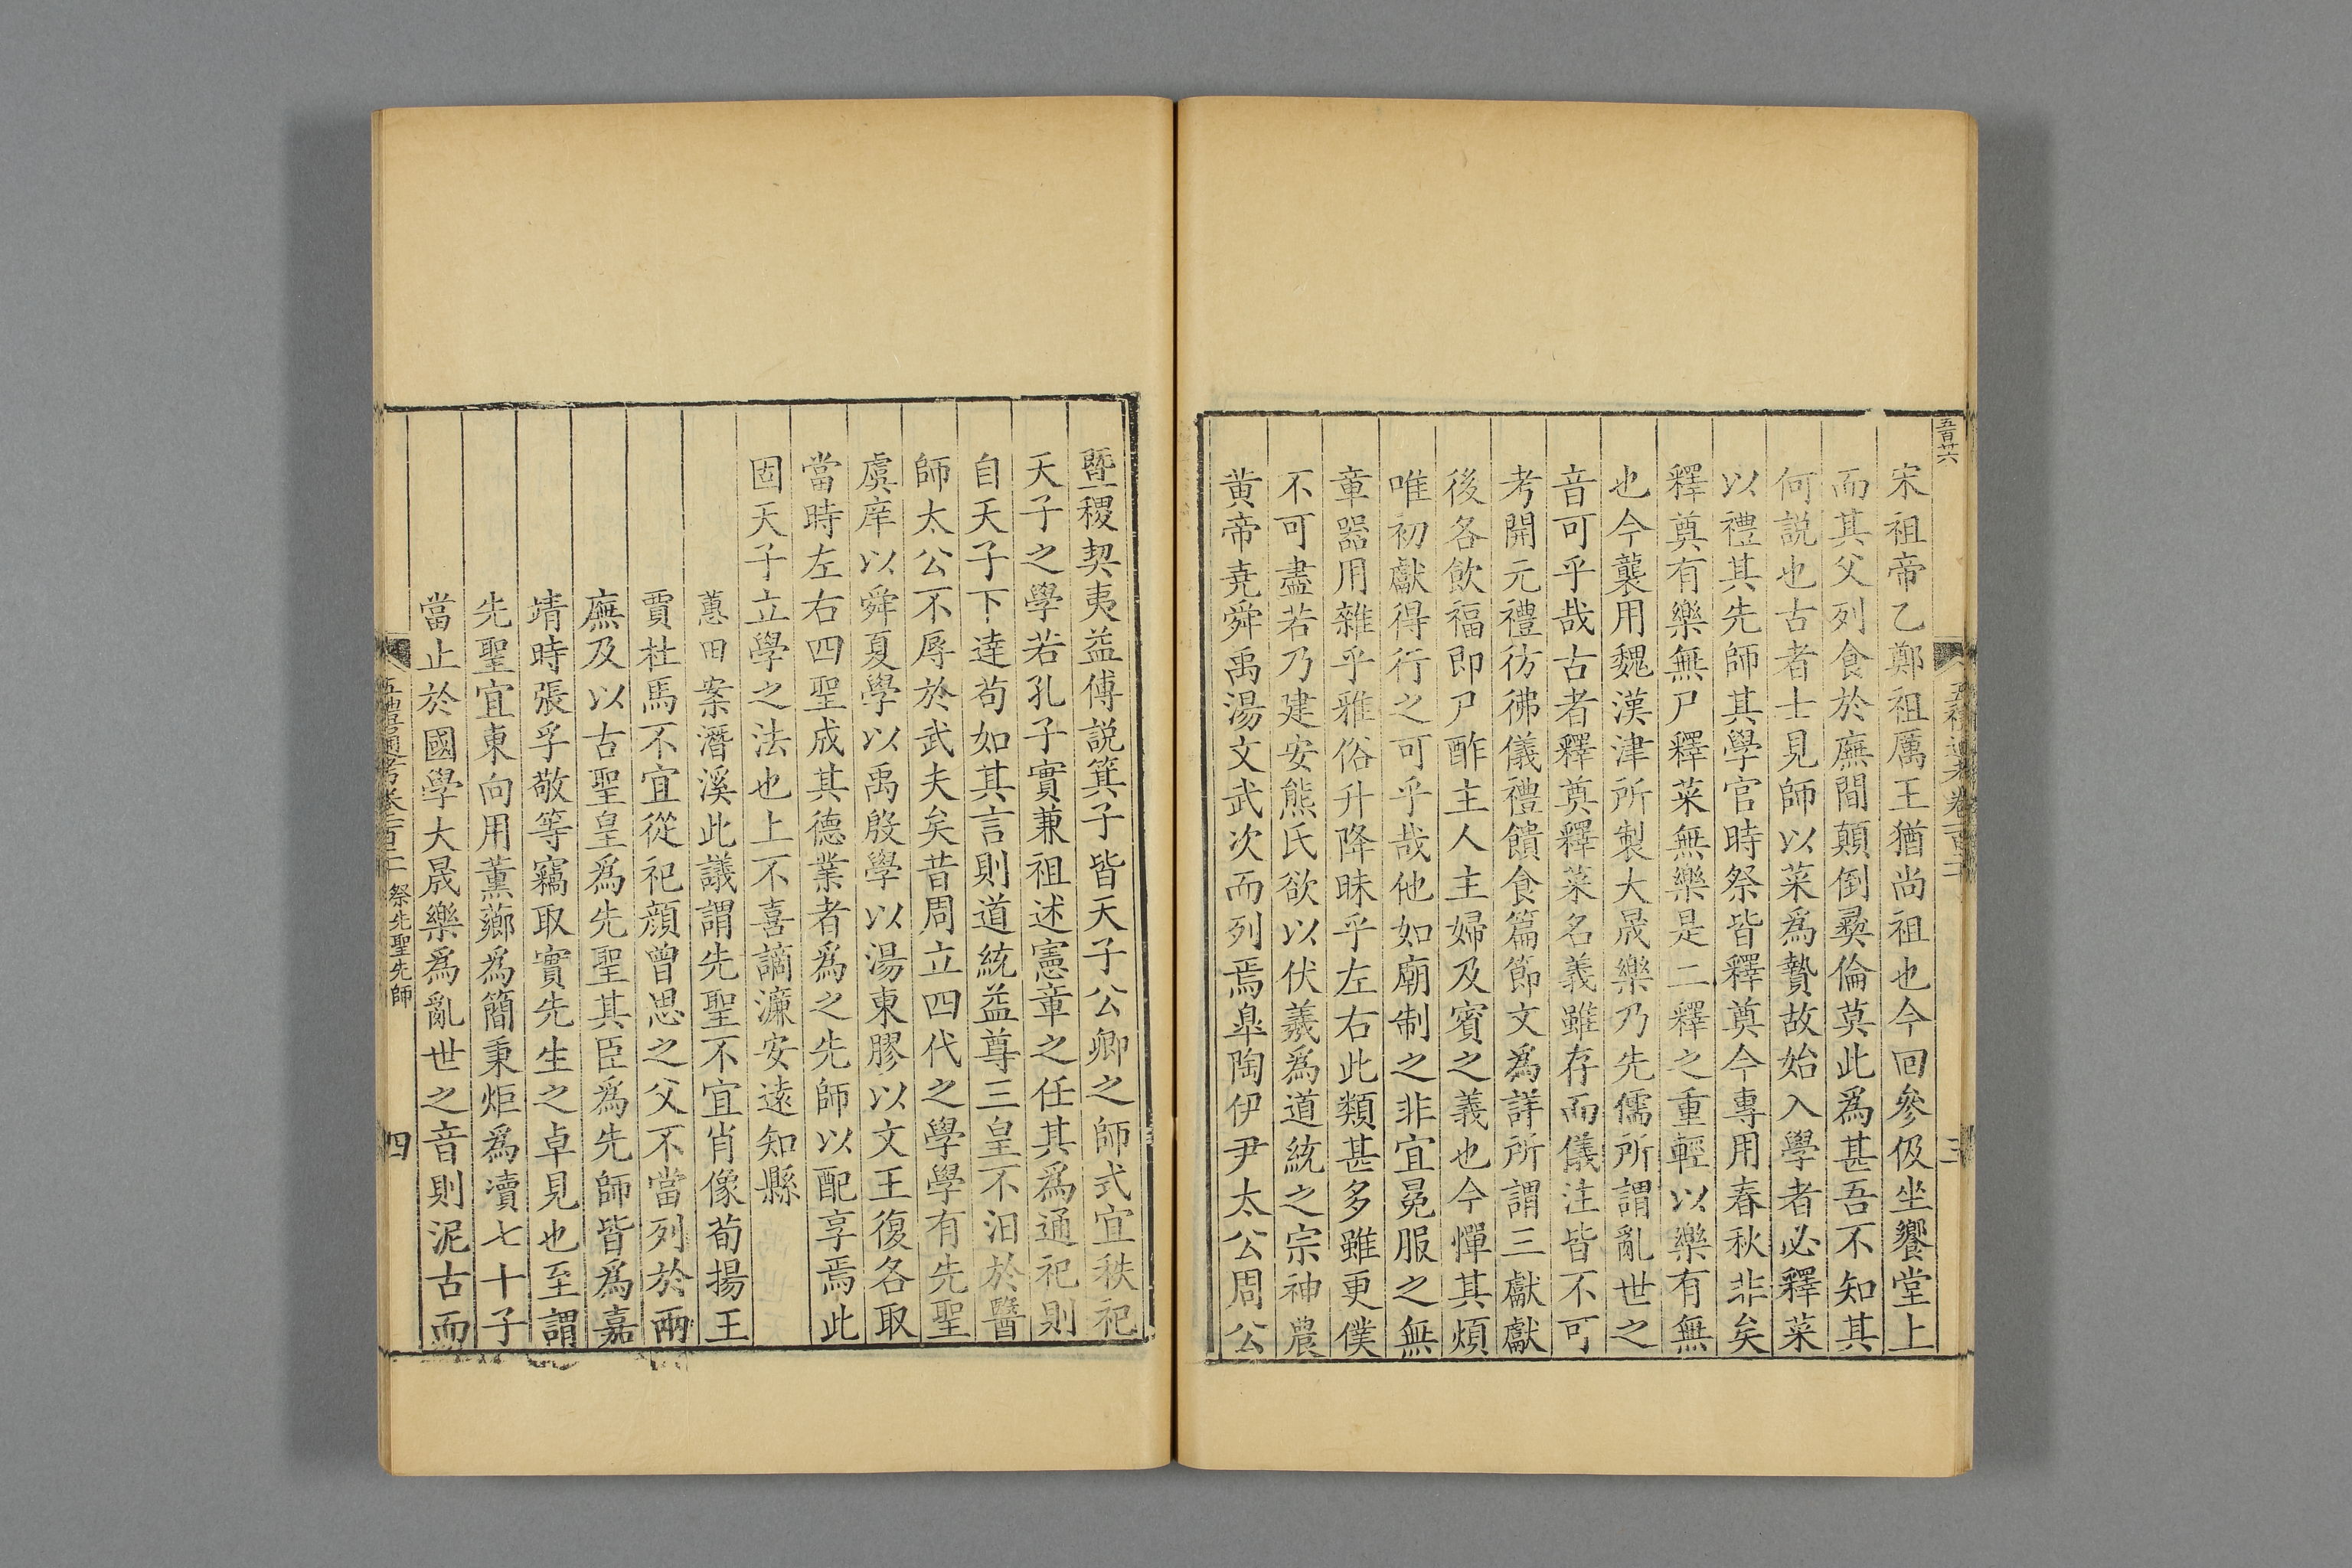 五百廿六
宋祖帝乙鄭祖厲王猶尚祖也今回參伋坐饗堂上
而其父列食於廡間顛倒彝倫莫此為甚吾不知其
何說也古者士見師以菜為贄故始入學者必釋菜
以禮其先師其學官時祭皆釋奠今專用春秋非矣
釋奠有樂無尸釋菜無樂是二釋之重輕以樂有無
也今襲用魏漢津所製大晟樂乃先儒所謂亂世之
音可乎哉古者釋奠釋菜名義雖存而儀注皆不可
考開元禮彷彿儀禮饋食篇節文為詳所謂三獻獻
後各飲福即尸酢主人主婦及賓之義也今憚其煩
唯初獻得行之可乎哉他如廟制之非宜冕服之無
章器用雜乎雅俗升降昧乎左右此類甚多雖更僕
不可盡若乃建安熊氏欲以伏羲為道統之宗神農
黃帝堯舜禹湯文武次而列焉臯陶伊尹太公周公
暨稷契夷益傅說箕子皆天子公卿之師式宜秩祀
天子之學若孔子實兼祖述憲章之任其為通祀則
自天子下達苟如其言則道統益尊三皇不汩於醫
師太公不辱於武夫矣昔周立四代之學學有先聖
虞庠以舜夏學以禹殷學以湯東膠以文王復各取
當時左右四聖成其德業者為之先師以配享焉此
固天子立學之法也上不喜謫濂安遠知縣
蕙田案潛溪此議謂先聖不宜肖像荀揚王
賈杜馬不宜從祀顏曾思之父不當列於兩
廡及以古聖皇為先聖其臣為先師皆為嘉
靖時張孚敬等竊取實先生之卓見也至謂
先聖宜東向用薰薌為簡秉炬為瀆七十子
當止於國學大晟樂為亂世之音則泥古而
五禮通考卷一百十一 祭先聖先師
四